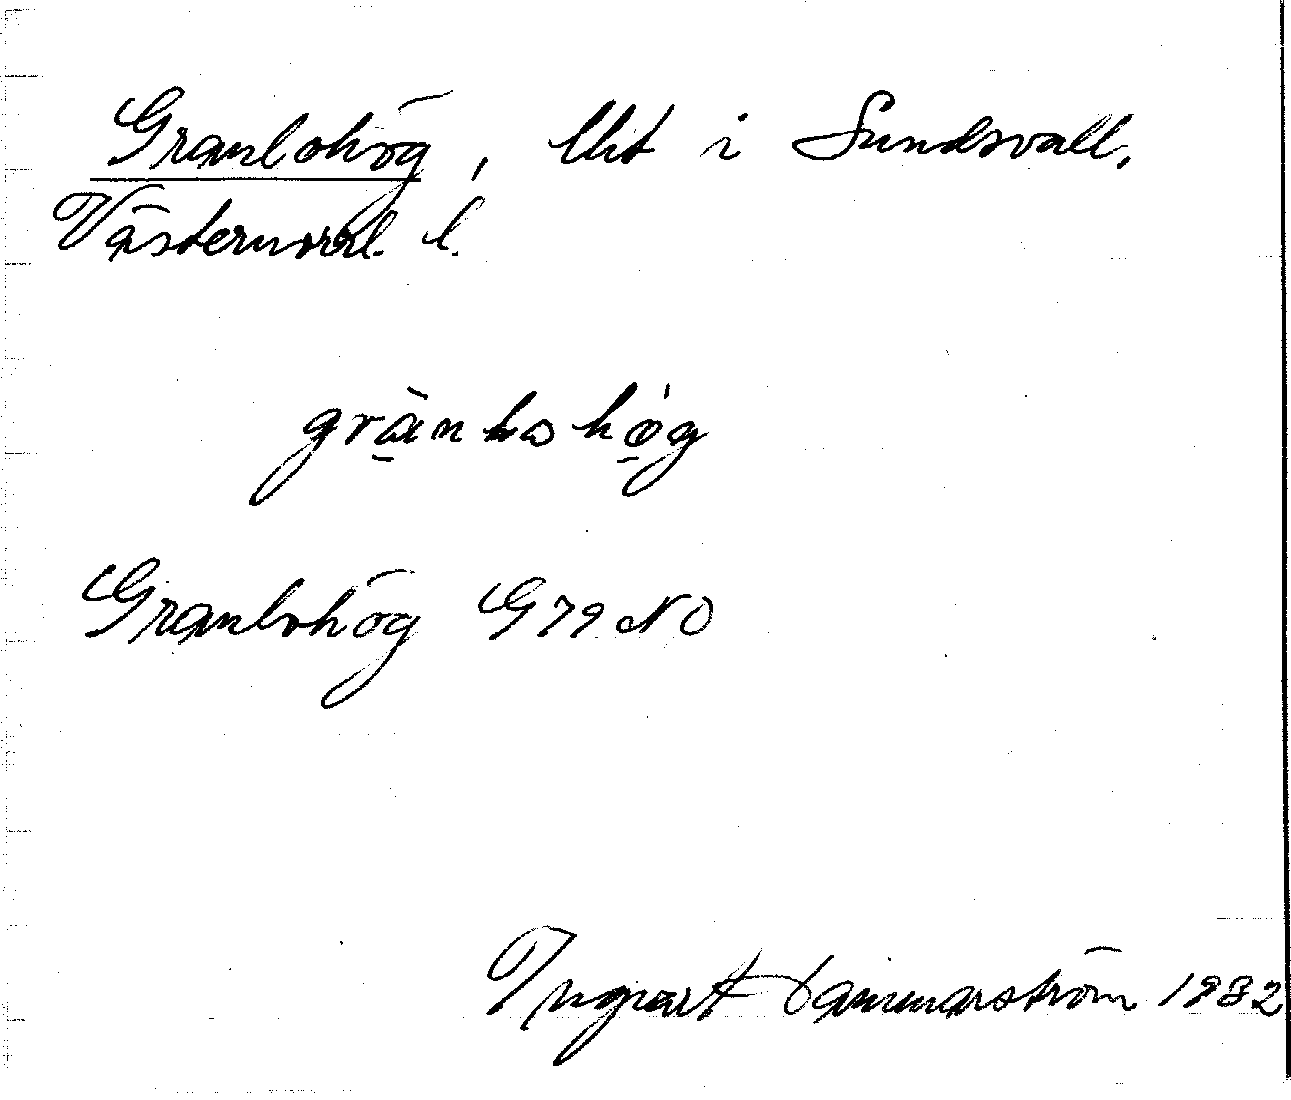 Granbohög, blit i Sundsvall,
Västernorrl. l.
grànbohǿg
Granbohög G79 NO
Ingvart Hammarström 1982